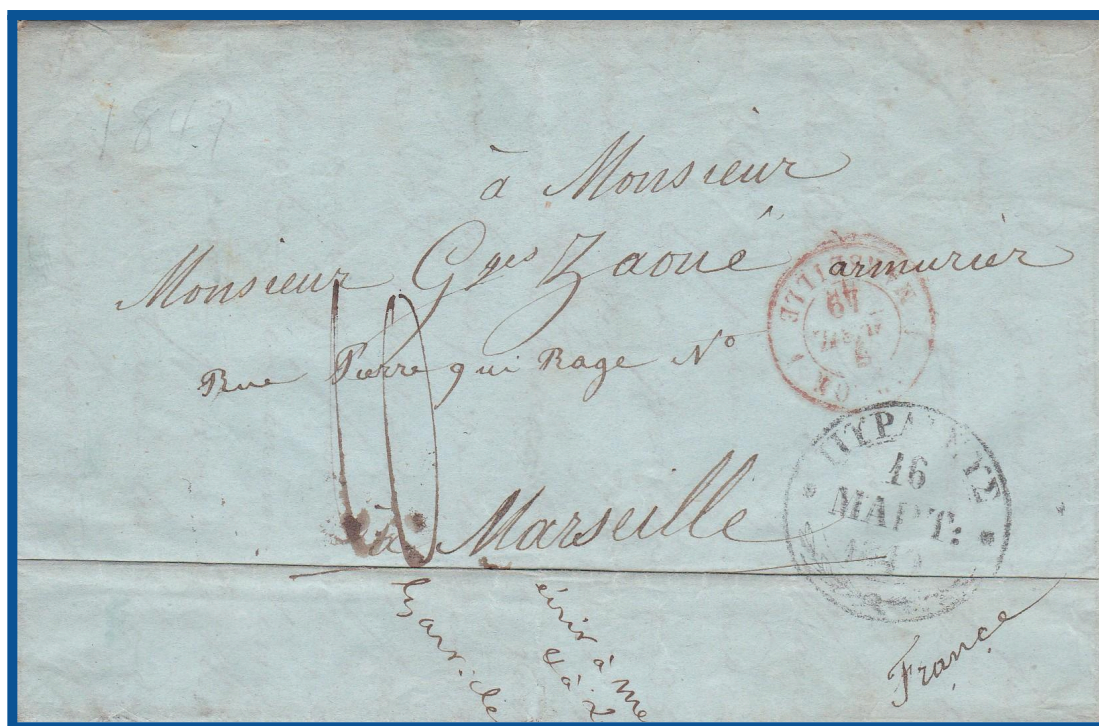 1849
à Monsieur
Monsieur Gges Zaoué armurier
Rue Pierre qui Rage No
à Marseille
France
10
MARSEILLE
AVRIL
49
16
ΜΑΡΤ:
écrir à me